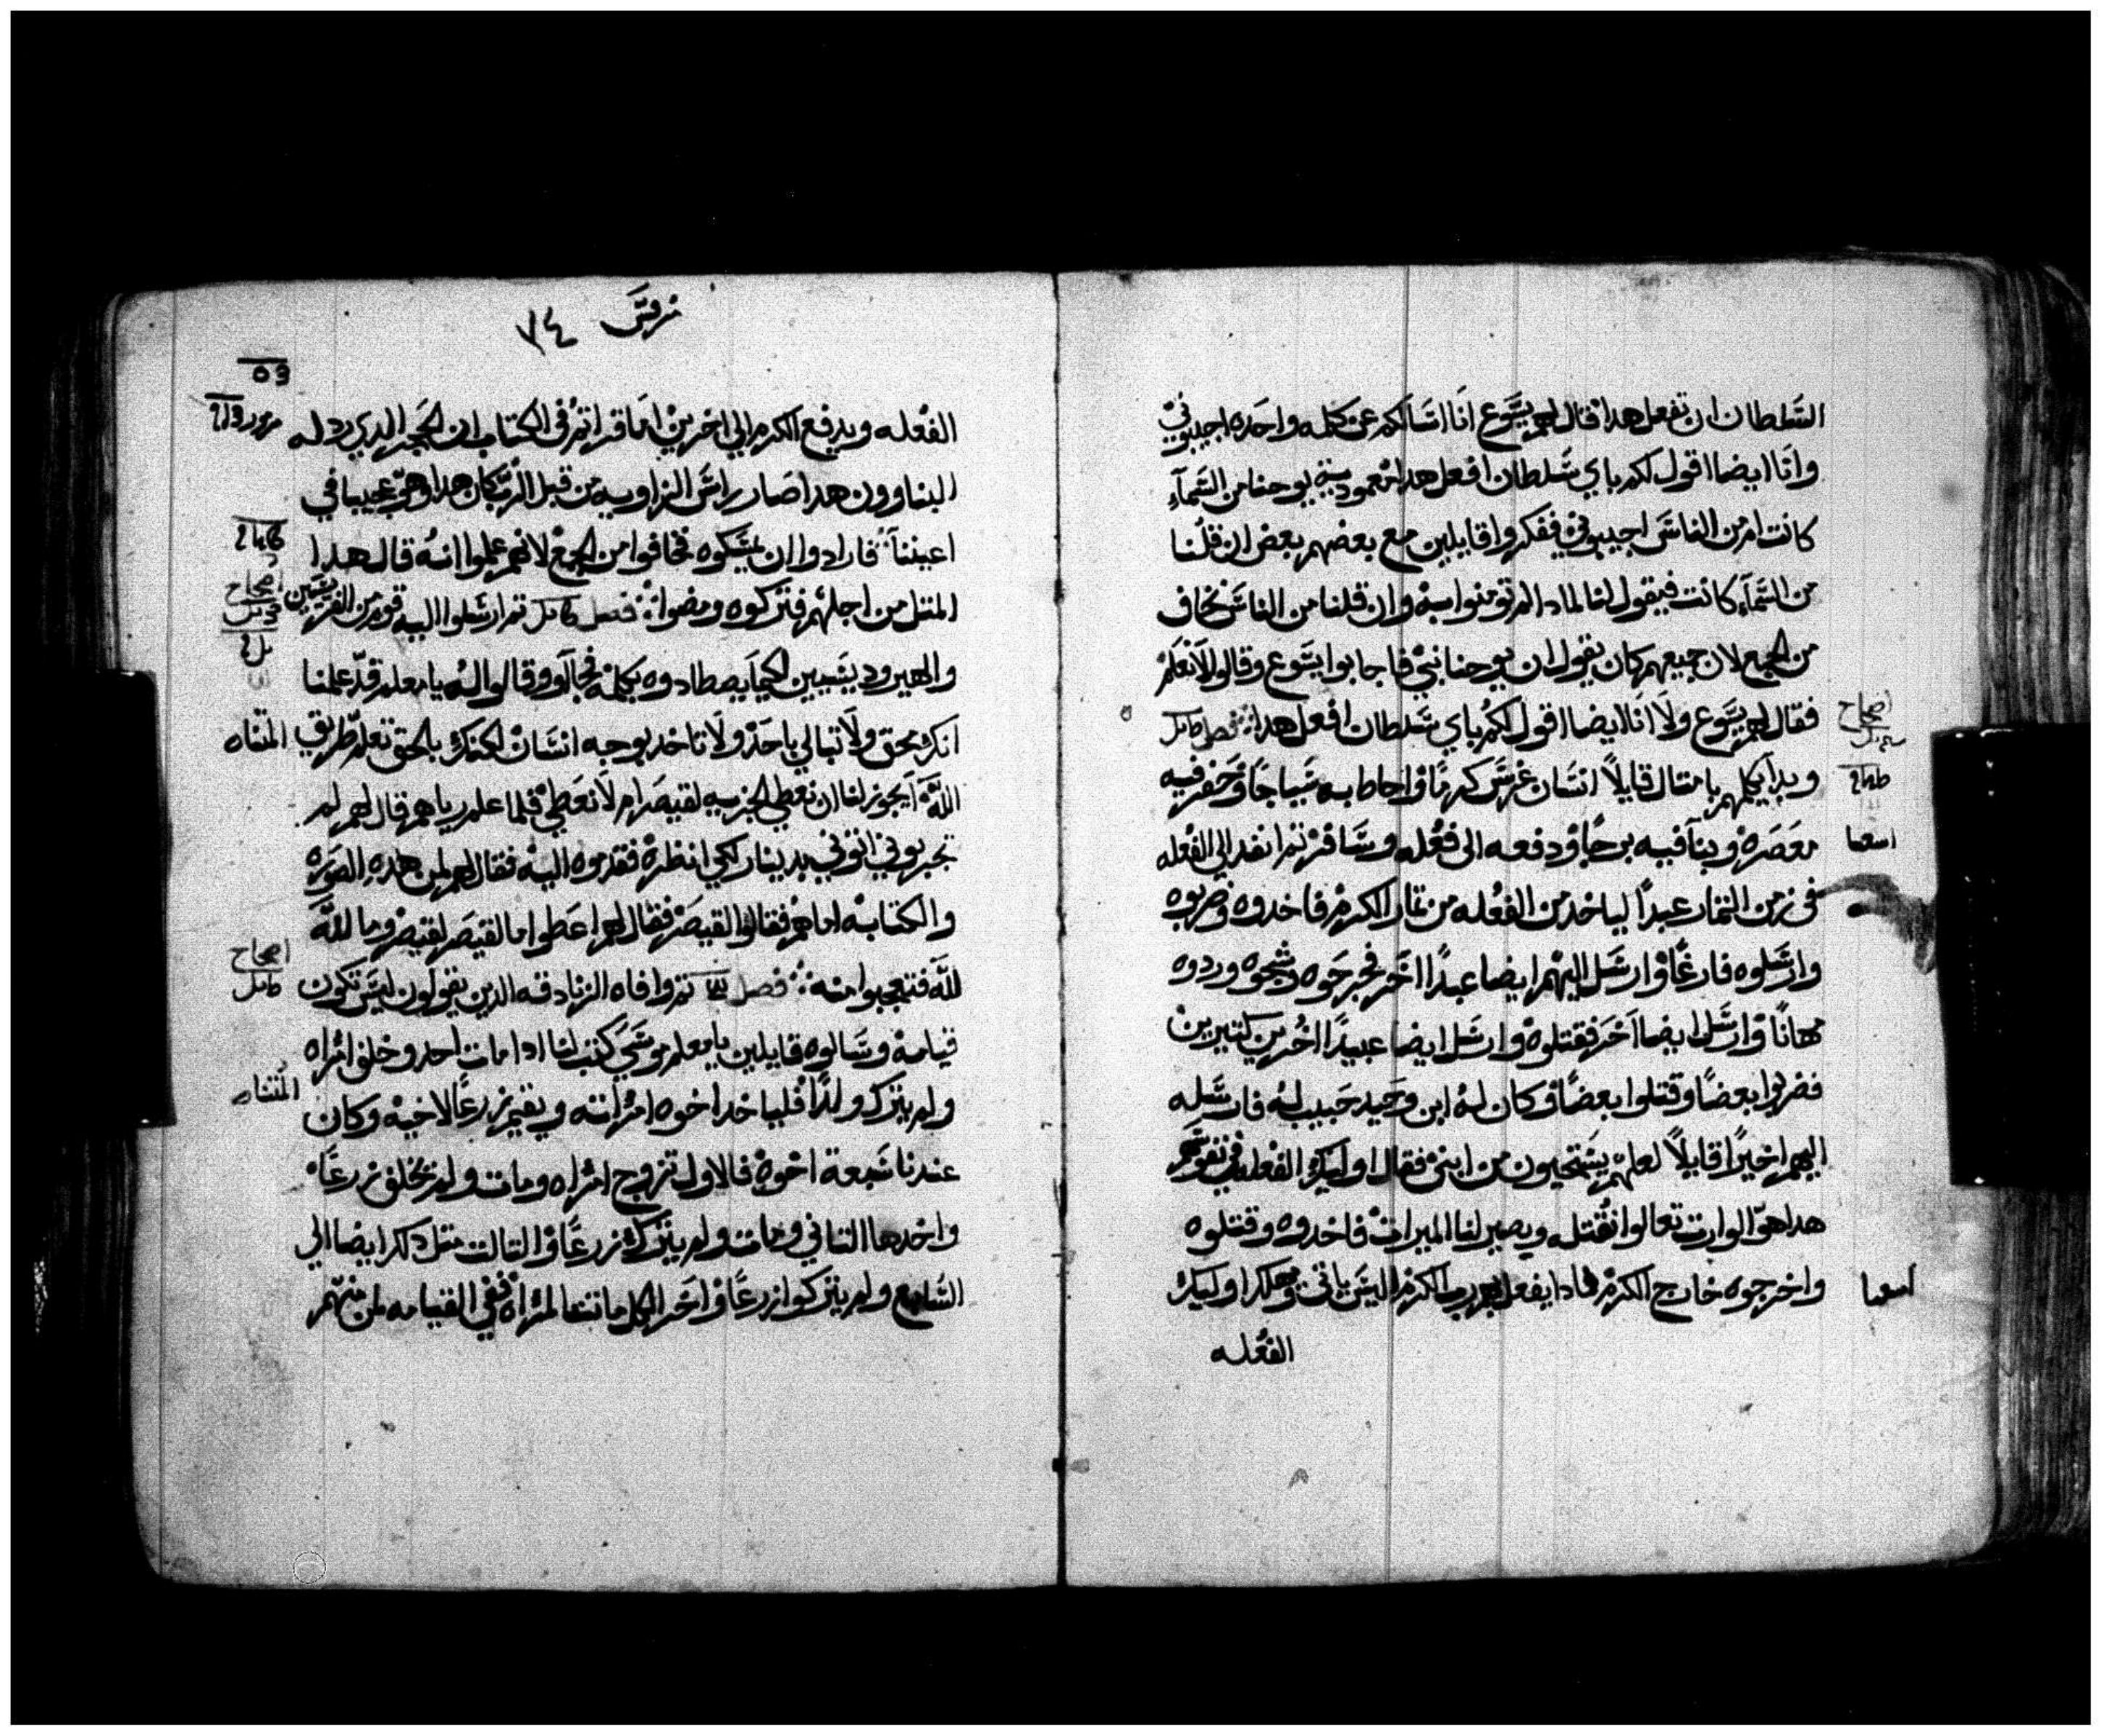 السلطان ان تفعل هدا فقال لهم يسوع انا اسالكم عن كلمه واحده اجيبوني
وانا ايضا اقول لكم باي سلطان افعل هدا معمودية يوحنا من السماء
كانت ام من الناس اجيبوني ففكروا قايلين مع بعضهم بعض ان قلنا
من السماء كانت فيقول لنا لمادا لم تومنوا به وان قلنا من الناس نخاف
من الجمع لان جميعهم كان يقول ان يوحنا نبي فاجابوا يسوع وقالوا لا نعلم
فقال لهم يسوع ولا انا ايضا اقول لكم باي سلطان افعل هدا فصل كامل
اصحاح
وبدا يكلمهم بامتال قايلا انسان غرس كرما واحاط به سياجا وحفر فيه
معصره وبنا فيه برجا ودفعه الى فعله وسافر تم انفد الي الفعله
اسعيا
في زمن التمار عبدا لياخد من الفعله من تمار الكرم فاخدوه وضربوه
وارسلوه فارغا وارسل اليهم ايضا عبدا اخر فجرحوه وشجوه وردوه
مهانا وارسل ايضا اخر فقتلوه وارسل ايضا عبيدا اخرين كتيرين
فضربوا بعضا وقتلوا بعضا وكان له ابن وحيد حبيب له فارسله
اليهم اخيرا قايلا لعلهم يستحيون من ابني فقال اوليك الفعله في نفوسهم
هدا هو الوارت تعالوا نقتله ويصير لنا الميرات فاخدوه وقتلوه
واخرجوه خارج الكرم فمادا يفعل بهم رب الكرم اليس ياتي ويهلك اوليك
اسعيا
الفعله
مرقس ٧٤
الفعله ويدفع الكرم الي اخرين اما قراتم في الكتاب ان الحجر الدي ردله
مزمور
البناوون هدا صار راس الزاويه من قبل الرب كان هدا وهو عجيبا في
اعيننا فارادوا ان يمسكوه فخافوا من الجمع لانهم علموا انه قال هدا
المتل من اجلهم فتركوه ومضوا فصل كامل تم ارسلوا اليه قوم من الفريسيين
اصحاح
والهيروديسيين لكيما يصطادوه بكلمه فجاوو وقالوا له يا معلم قد علمنا
انك محق ولا تبالي باحد ولا تاخد بوجه انسان لكنك بالحق تعلم طريق
الله ايجوز لنا ان نعطي الجزيه لقيصر ام لا نعطي فلما علم رياهم قال لهم لم
تجربوني اتوني بدينار لكي انظره فقدموه اليه فقال لهم لمن هده الصوره
والكتابه اما هم فقالوا لقيصر فقال لهم اعطوا ما لقيصر لقيصر وما لله
لله فتعجبوا منه فصل تم وافاه الزنادقه الدين يقولون ليس تكون
اصحاح
قيامه وسالوه قايلين يا معلم موسي كتب لنا ادا مات احد وخلف امراه
ولم يترك ولدا فلياخد اخوه امراته ويقيم زرعا لاخيه وكان
عندنا سبعة اخوه فالاول تزوج امراه ومات ولم يخلف زرعا
واخدها التاني ومات ولم يترك زرعا والتالت متل دلك ايضا الي
السابع ولم يتركوا زرعا واخر الكل ماتت المراه ففي القيامه لمن منهم